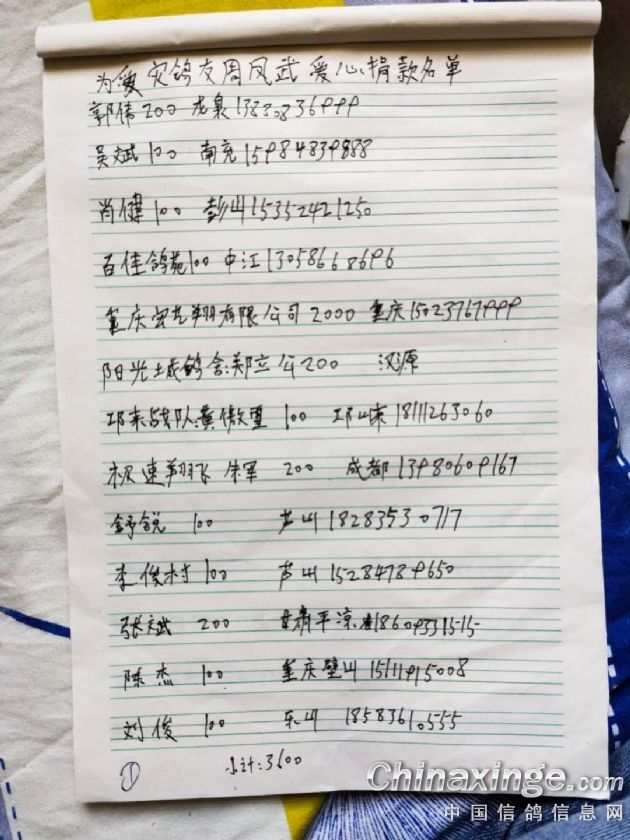 为受灾鸽友周风武爱心捐款名单
郭伟 200 龙泉 13880836999
吴斌 100 南充 15984839888
肖健 100 彭山 15352421250
百佳鸽苑 100 中江 13058668696
重庆宏艺翔有限公司 2000 重庆 15023767999
阳光土城鸽舍:郑立公 200 汉源
邛来战队:黄傲雪 100 邛崃 18111263060
极速翔飞 朱军 200 成都 13980609167
舒锐 100 芦山 18283530717
李俊村 100 芦山 15284789650
张斌 200 甘肃平凉 18609331515
陈杰 100 重庆壁山 15111915008
刘俊 100 乐山 18583610555
① 小计:3600
Chinaxinge.com
中国信鸽信息网